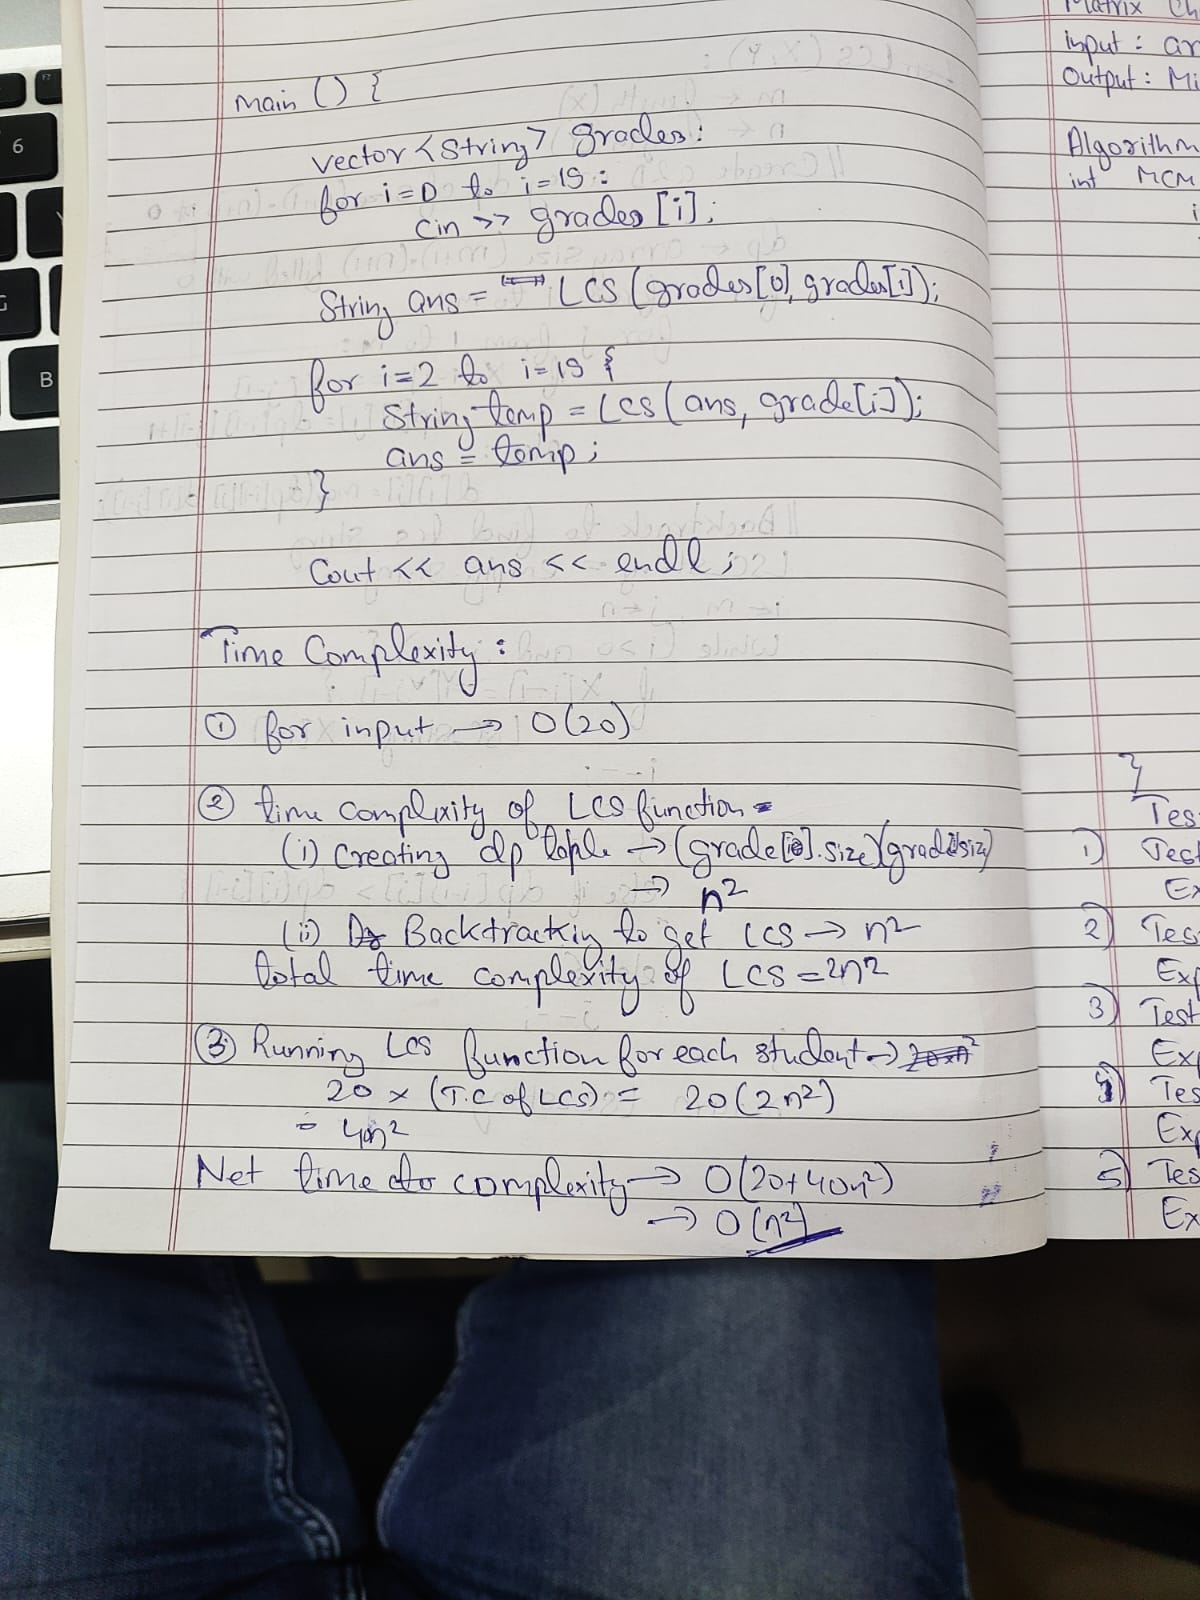 main () {
vector <string> grades:
for i=0 to i=19:
cin >> grades [i];
String ans = LCS (grades[0], grades[1]);
for i=2 to i=19 {
String temp = LCS (ans, grade[i]);
ans = temp;
}
Cout << ans << endl;
Time Complexity:
① for input → O(20)
② time complexity of LCS function =
(i) Creating dp table → (grade[0].size)(grade[1].size)
→ n²
(ii) Backtracking to get LCS → n²
total time complexity of LCS = 2n²
③ Running LCS function for each student →
20 × (T.C of LCS) = 20(2n²)
= 40n²
Net time complexity → O(20+40n²)
→ O(n²)
Matrix Ch
Input: ar
Output: Mi
Algorithm
int MCM
i
}
Tes
1) Test
Ex
2) Tes
Exp
3) Test
Ex
4) Tes
Exp
5) Tes
Ex
F7
6
G
B